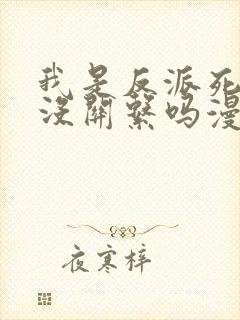 我是反派死
没關繫吗漫
夜寒梓